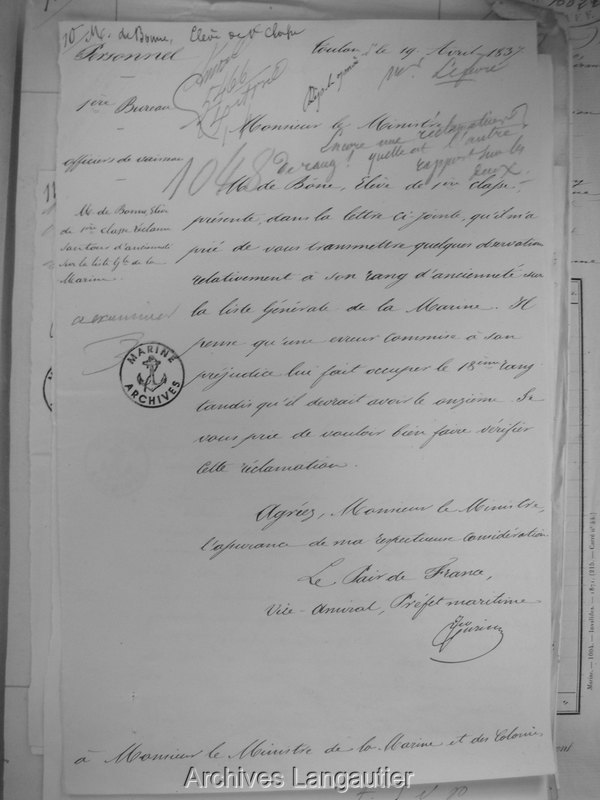 M. de Bonne, Elève de 1re classe
Personnel
Toulon, le 19 Avril 1837
1er Bureau
Mr Lefevre
Monsieur le Ministre
officiers de vaisseau
Encore une réclamation
de rang! quelle est l'autre.
rapport sur les
deux.
1048
M. de Bonne, Elève de 1ère classe,
présente, dans la lettre ci-jointe, qu'il m'a
prié de vous transmettre quelques observations
relativement à son rang d'ancienneté sur
la liste Générale de la Marine. Il
pense qu'une erreur commise à son
préjudice lui fait occuper le 18ème rang
tandis qu'il devrait avoir le onzième. Je
vous prie de vouloir bien faire vérifier
cette réclamation.
M. de Bonne, Elève
de 1ère classe réclame
son tour d'ancienneté
sur la liste Gle de la
Marine.
a examiner
MARINE
ARCHIVES
Agréez, Monsieur le Ministre,
l'assurance de ma respectueuse considération
Le Pair de France,
Vice-Amiral, Préfet maritime
à Monsieur le Ministre de la Marine et des Colonies
Marine. — 1664. — Invalides. — 1871. (215. — Carré n° 34.)
Archives Langautier